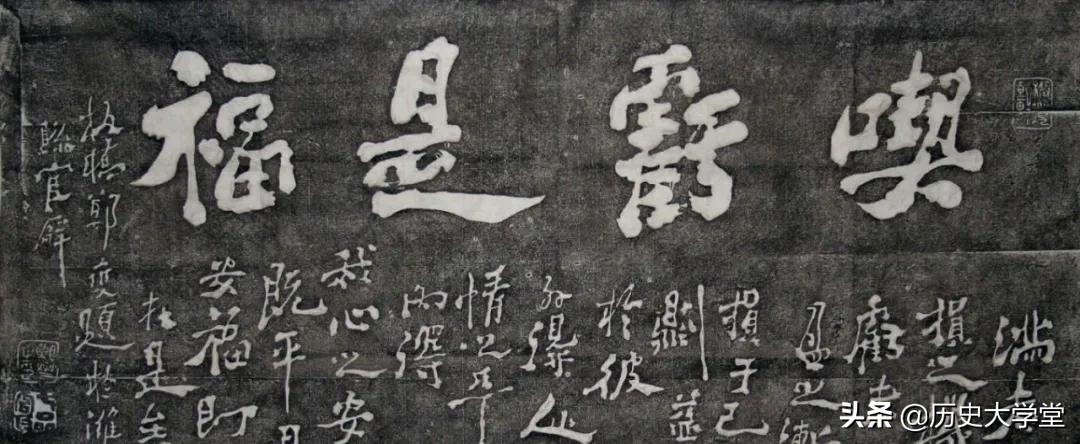 喫虧是福
滿者
損之機
虧者
盈之漸
損于己
則益
於彼
外
情之平
内得
我心之安
既平且
安福即
在是矣
板橋鄭燮題於濰
縣官廨
头条 @历史大学堂